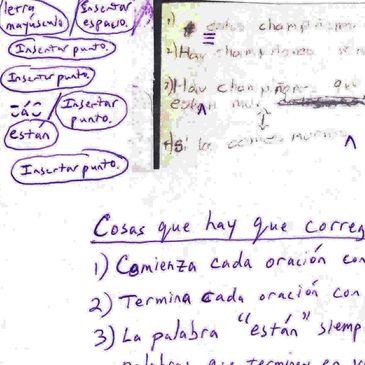 letra Insertar
mayúscula espacio.
Insertar punto.
Insertar punto.
Insertar
punto.
están
Insertar punto.
1) estos champiñones
2) Hay champiñones
3) Hay champiñones que
estan muy
4) si los comes
Cosas que hay que correg
1) Comienza cada oración con
2) Termina cada oración con
3) La palabra "están" siemp
palabras que terminen en